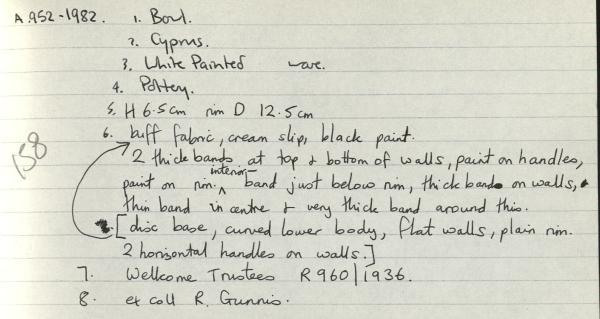 A.952-1982. 1. Bowl.
2. Cyprus.
3. White Painted ware.
4. Pottery.
5. H 6.5cm rim D 12.5cm
6. buff fabric, cream slip, black paint.
2 thick bands at top & bottom of walls, paint on handles,
paint on rim. interior - band just below rim, thick bands on walls, &
thin band in centre & very thick band around this.
[disc base, curved lower body, flat walls, plain rim.
2 horizontal handles on walls.]
7. Wellcome Trustees R960/1936.
8. ex coll R. Gunnis.
158